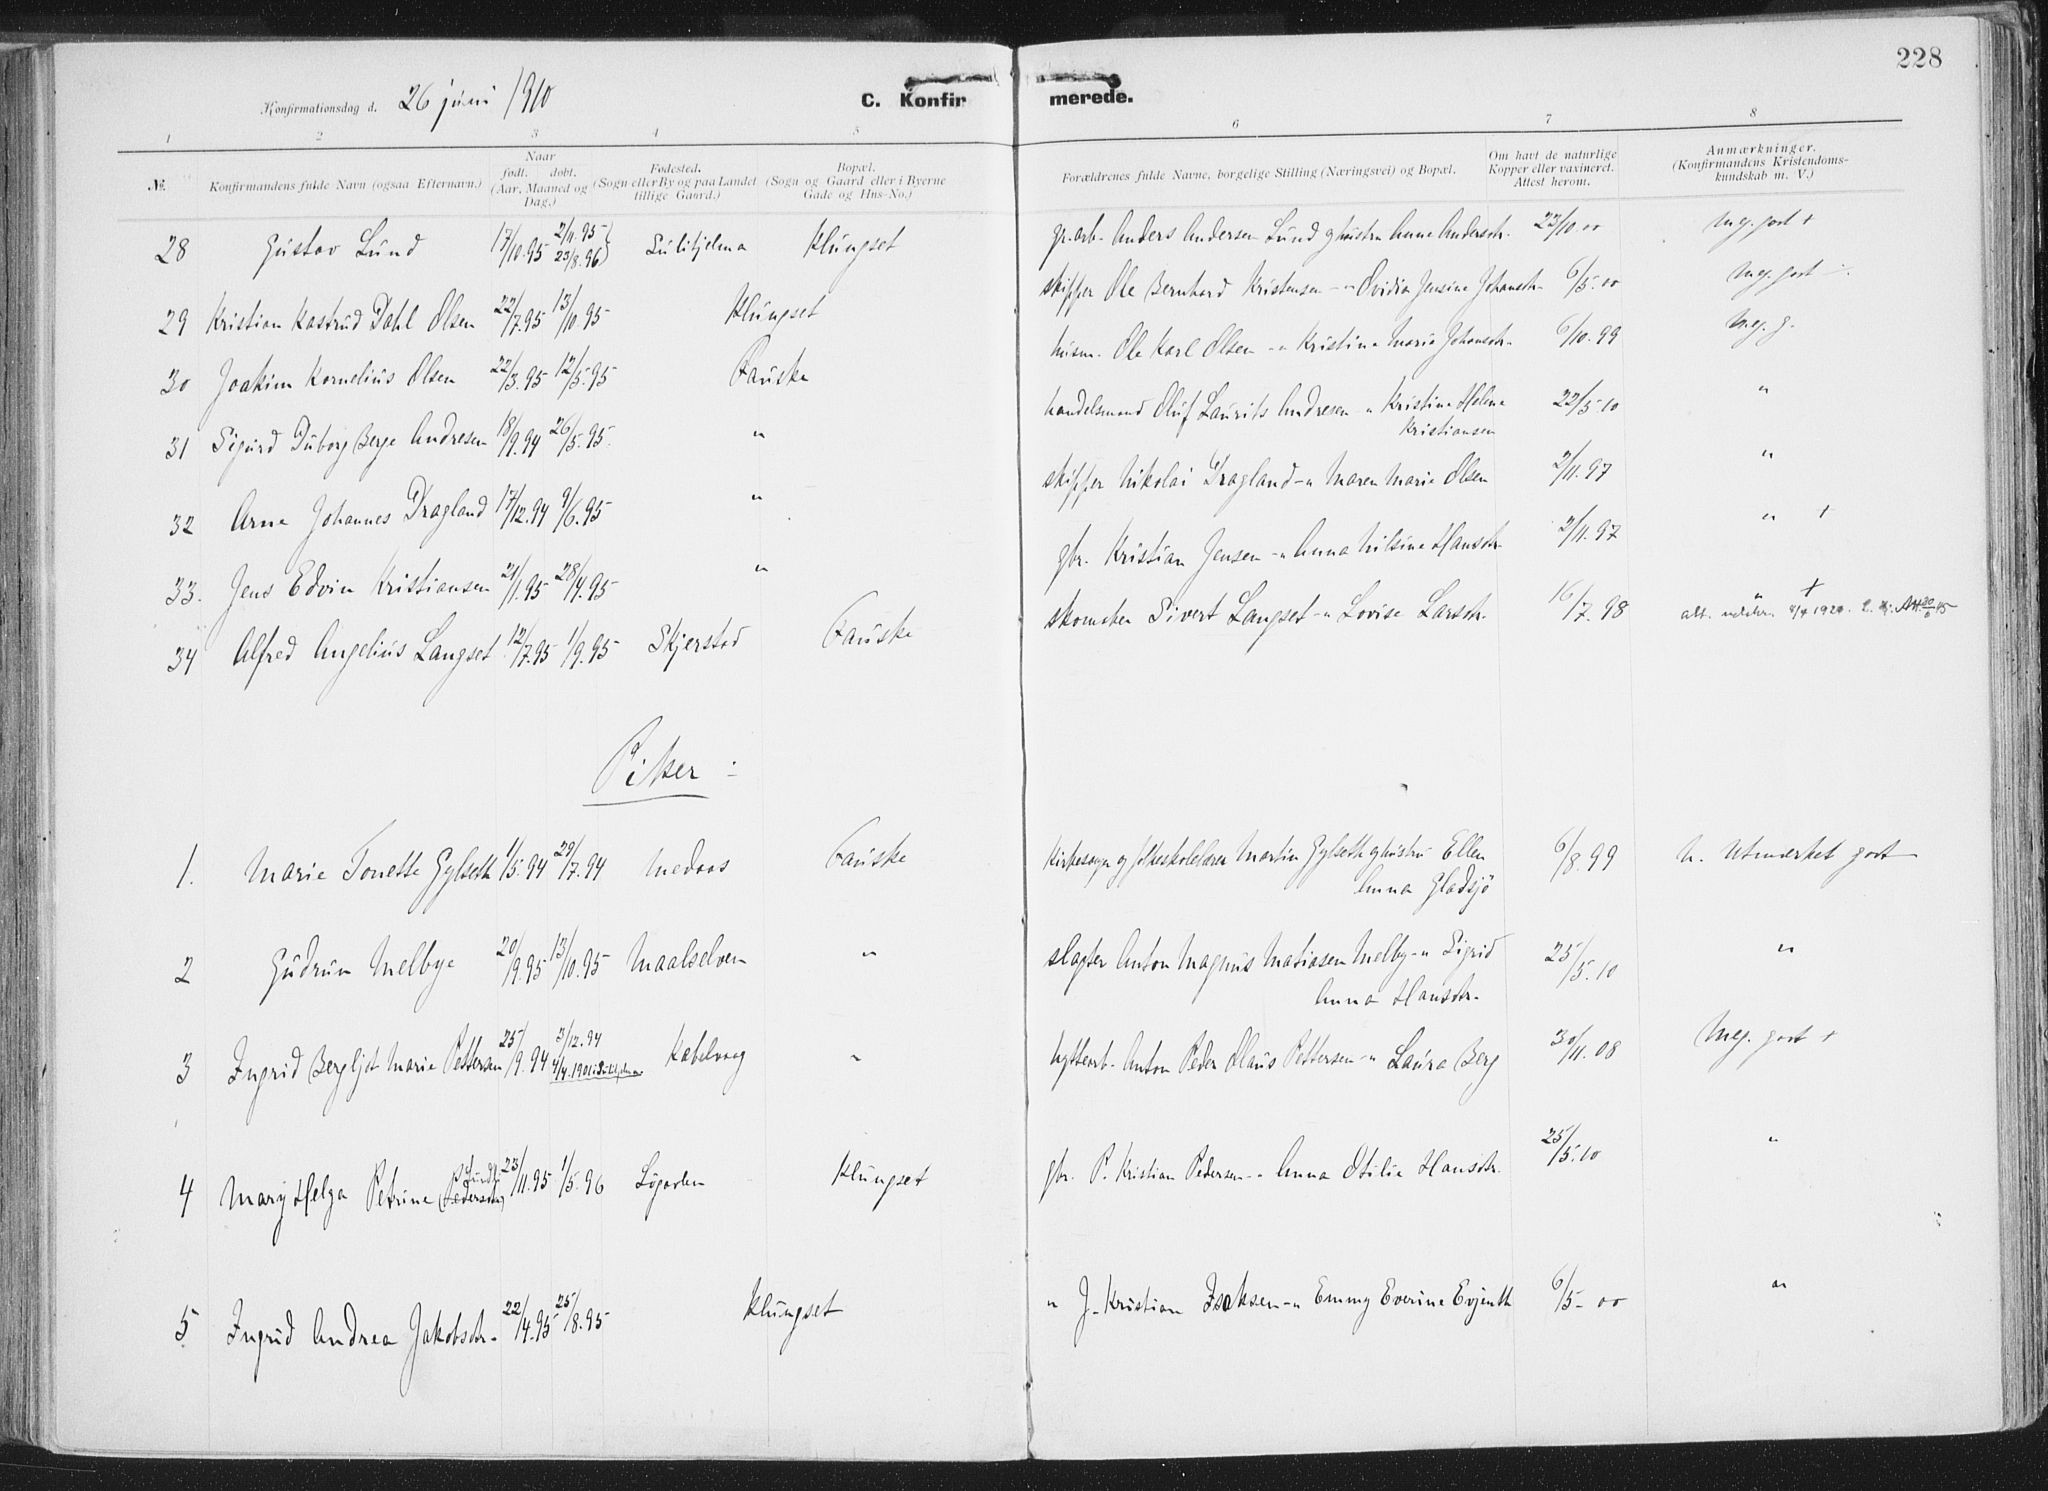 228
Konfirmationsdag d. 26 juni 1910
C. Konfir merede.
1 2 3 4 5 6 7 8
№. Konfirmandens fulde Navn (ogsaa Efternavn.) Naar født. døbt. (Aar, Maaned og Dag.) Fødested. (Sogn eller By og paa Landet tillige Gaard.) Bopæl. (Sogn og Gaard eller i Byerne Gade og Hus-No.) Forældrenes fulde Navne, borgelige Stilling (Næringsvei) og Bopæl. Om havt de naturlige Kopper eller vaxineret. Attest herom. Anmærkninger. (Konfirmandens Kristendoms-kundskab m. V.)
28 Gustav Lund 17/10.95 2/11.95 23/8.96 Sulitjelma Klungset gr.arb. Anders Andersen Lund & hustru Anne Andersdtr. 23/10 00 Meg. godt +
29 Kristian Kastrud Dahl Olsen 22/7.95 13/10.95 Klungset skipper Ole Bernhard Kristensen -"- Ovidia Jensine Johansdtr. 6/5.00 Meg. godt
30 Joakim Kornelius Olsen 22/3.95 12/5.95 Fauske husm. Ole Karl Olsen -"- Kristine Maria Johansdtr. 6/10.99 Meg. g.
31 Sigurd Duborg Berge Andresen 18/9.94 26/5.95 " handelsmand Oluf Laurits Andresen " Kristine Helene Kristiansen 22/5.10 "
32 Arne Johannes Dragland 17/12.94 9/6.95 " skipper Nikolai Dragland -"- Maren Marie Olsen 2/11.97 "
33. Jens Edvin Kristiansen 21/1.95 28/4.95 " gbr. Kristian Jensen -"- Anna Nilsine Hansdtr. 2/11.97 " +
34 Alfred Angelius Langset 12/7.95 1/9.95 Skjerstad Fauske skomaker Sivert Langset -"- Lovise Larsdtr. 16/7.98 +
Piker :
1. Marie Tonette Gylseth 1/5.94 29/7.94 Medaas Fauske kirkesanger og folkeskolelærer Martin Gylseth & hustru Ellen Anna Gladsjö 6/8.99 N. Utmærket godt
2 Gudrun Melbye 20/9.95 13/10.95 Maalselven " slagter Anton Magnus Matiasen Melby -"- Sigrid Anna Hansdtr. 25/5.10 "
3 Ingrid Bergljot Marie Pettersen 25/9.94 3/12.94 4/4.1901 i Sulitjelma Kabelvaag " hyttearb. Anton Peder Olaus Pettersen -"- Laura Berg 30/11.08 Meg. godt +
4 Mary Helga Petrine (Pedersen) 23/11.95 1/5.96 Løgavlen Klungset gbr. P. Kristian Pedersen -"- Anna Otilie Hansdtr. 25/5.10 "
5 Ingrid Andrea Jakobsdtr. 22/4.95 25/8.95 Klungset " J. Kristian Isaksen -"- Emmy Everine Evjenth 6/5.00 "